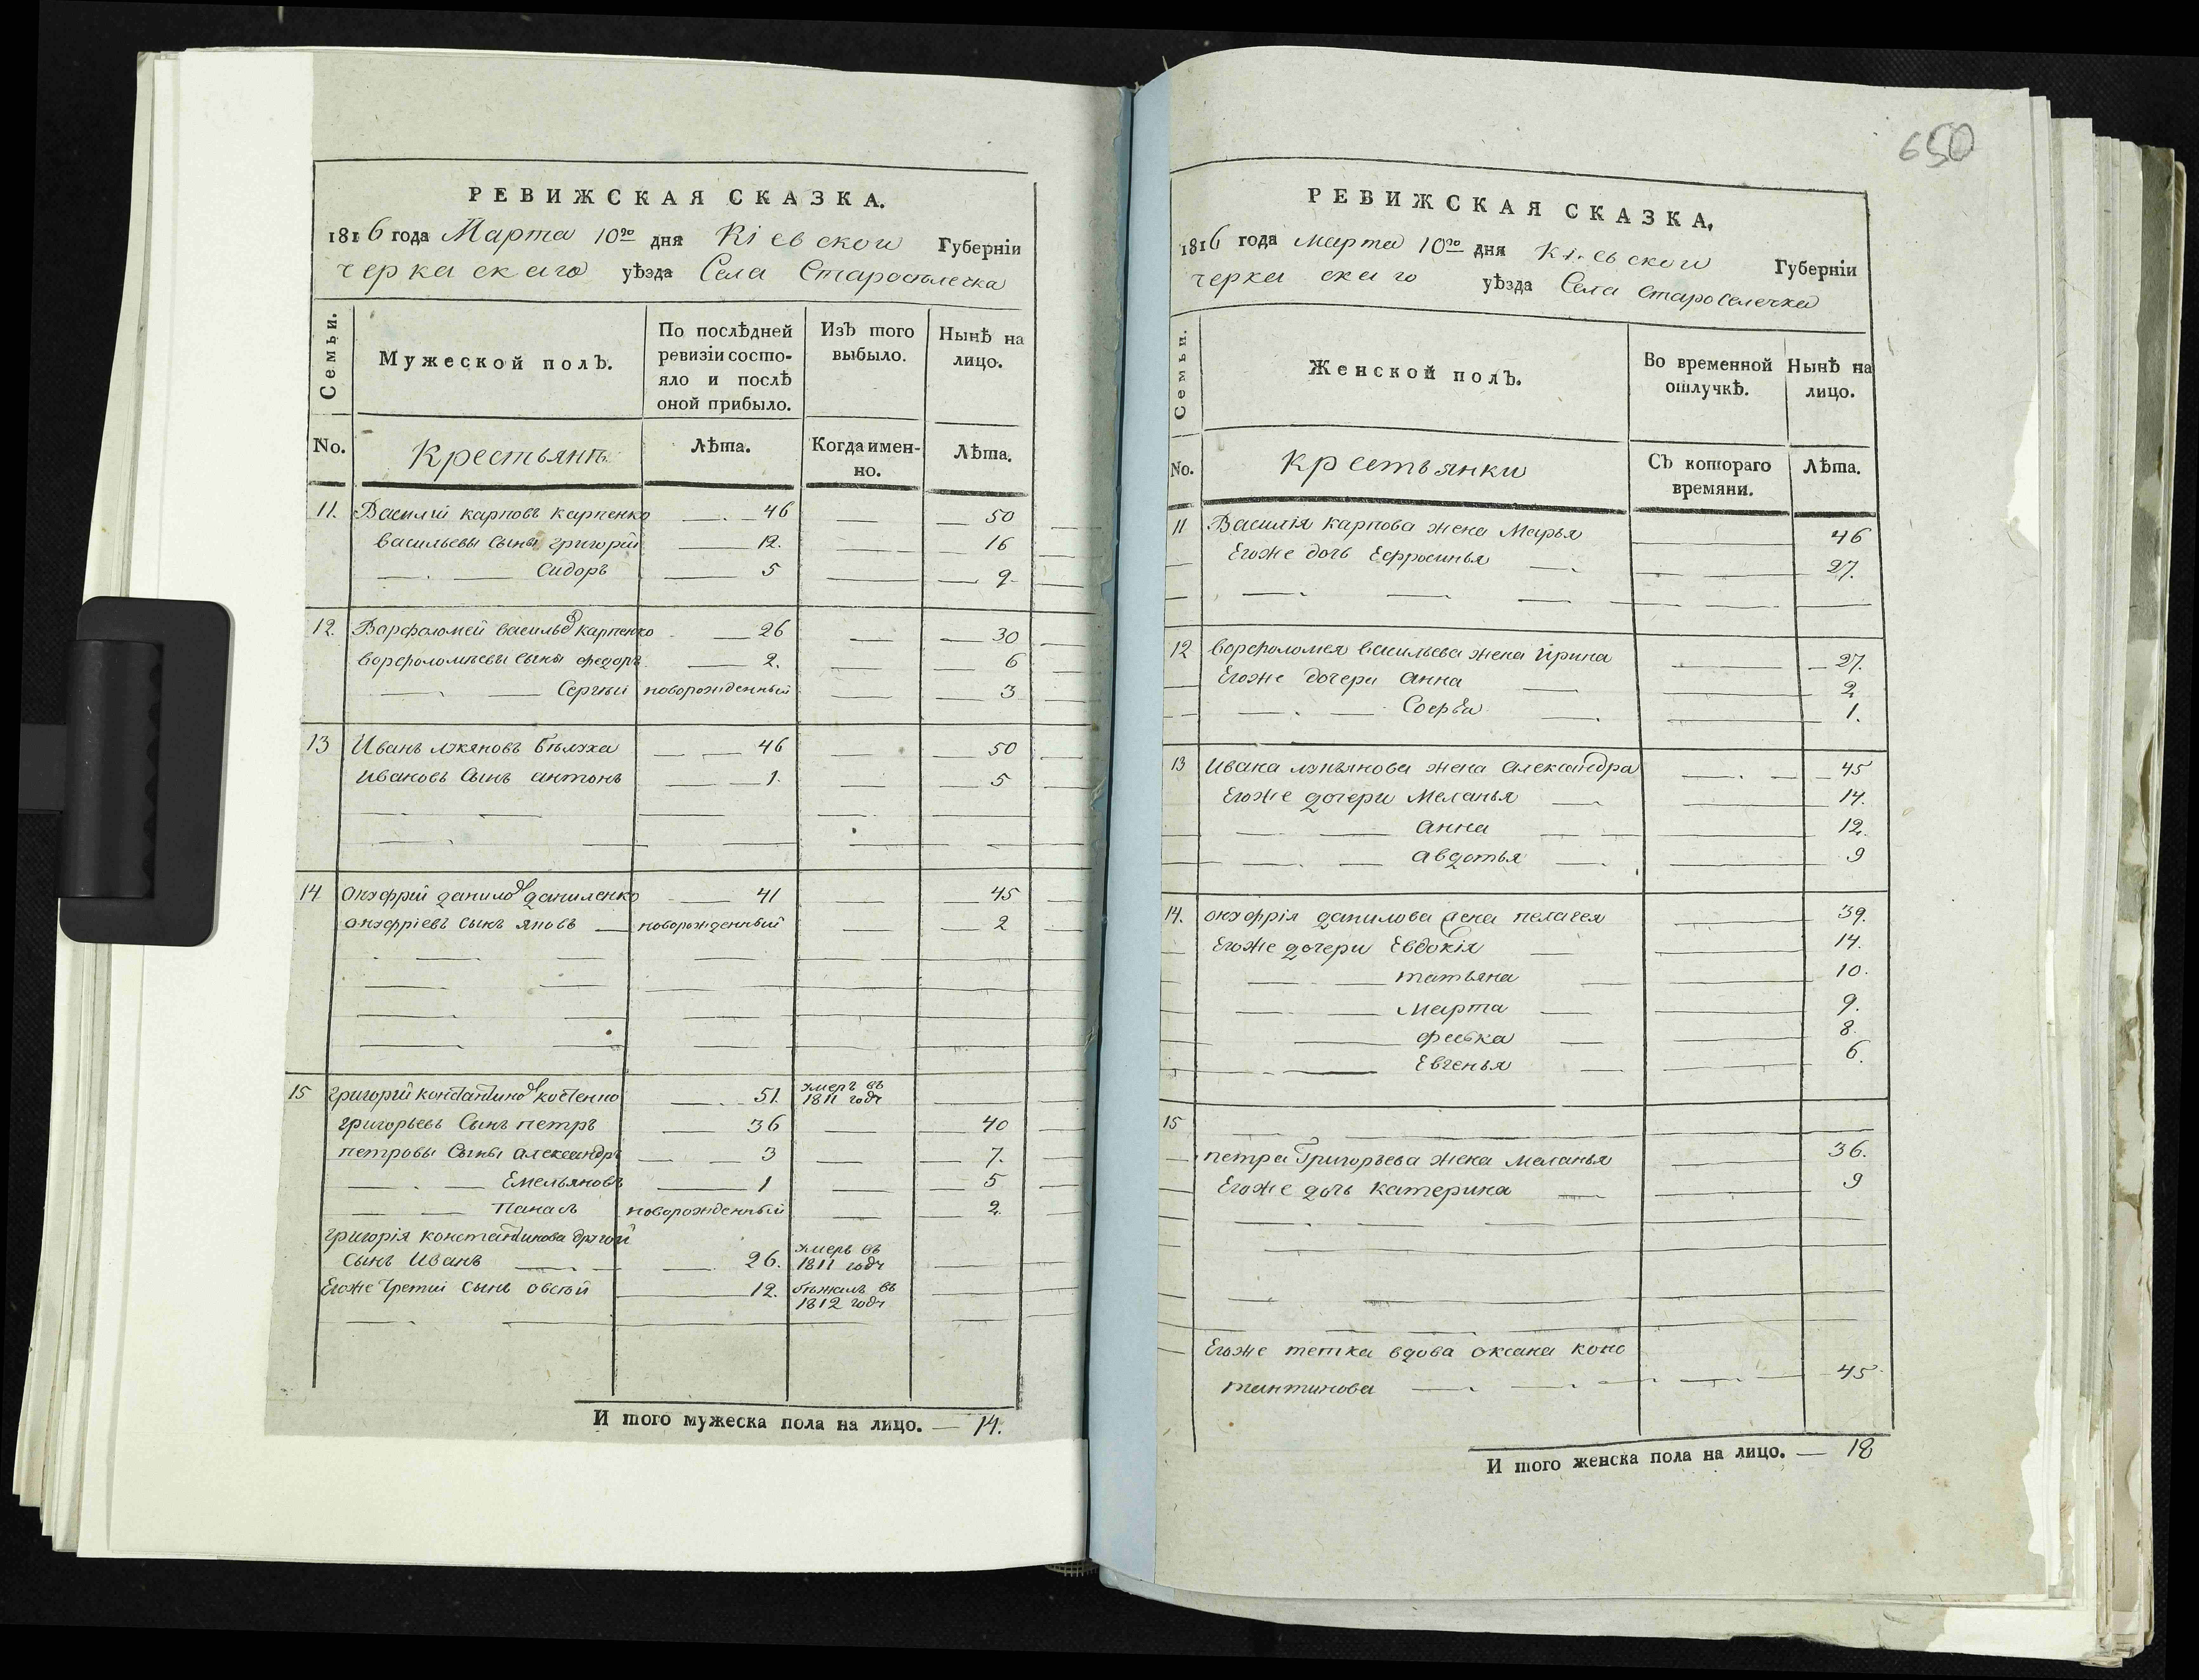 РЕВИЖСКАЯ СКАЗКА.
1816 года Марта 10го дня Кіевской Губерніи
черкаскаго уѣзда Села Старосѣлечка
Семьи.
Мужеской полъ.
По послѣдней ревизіи состо-
яло и послѣ
оной прибыло.
Изъ того
выбыло.
Нынѣ на
лицо.
No.
Крестьянъ
Лѣта.
Когда имен-
но.
Лѣта.
11. Василій карповъ карпенко — 46 — 50
васильевы сыны григорій — 12. — 16
— Сидоръ — 5 — 9
12. Варфоломей васильев карпенко — 26 — 30
ворфоломѣевы сыны федоръ — 2. — 6
— Сергѣй новорожденный — 3
13 Иванъ лукяновъ бѣлуха — 46 — 50
ивановъ сынъ антонъ — 1. — 5
14 онуфрій данилов даниленко — 41 — 45
онуфріевъ сынъ яковъ — новорожденный — 2
15 григорій константинов костенко — 51. умеръ въ
1811 году
григорьевъ сынъ петръ — 36 — 40
петровы сыны александръ — 3 — 7.
— Емельяновъ — 1 — 5
— Панасъ новорожденный — 2.
григорія константинова другой
сынъ иванъ — 26. умеръ въ
1811 году
Егоже третій сынъ овсѣй — 12. бѣжалъ въ
1812 году
И того мужеска пола на лицо. — 14.
650
РЕВИЖСКАЯ СКАЗКА.
1816 года марта 10го дня Кіевской Губерніи
черкаскаго уѣзда Села Староселечка
Семьи.
Женской полъ.
Во временной
отлучкѣ.
Нынѣ на
лицо.
No.
крестьянки
Съ котораго
времяни.
Лѣта.
11 Василія карпова жена Марья — 46
Егоже дочь Ефросинья — 27.
12 ворфоломея васильева жена ирина — 27.
Егоже дочери анна — 2
— Софья — 1.
13 ивана лукьянова жена александра — 45
Егоже дочери Меланья — 14.
— анна — 12.
— авдотья — 9
14. онуфрія данилова жена пелагея — 39.
Егоже дочери Евдокія — 14.
— татьяна — 10.
— Марта — 9.
— февка — 8
— Евгенья — 6.
15
петра Григорьева жена меланья — 36.
Егоже дочь катерина — 9
Егоже тетка вдова оксана конс
тантинова — 45
И того женска пола на лицо. — 18